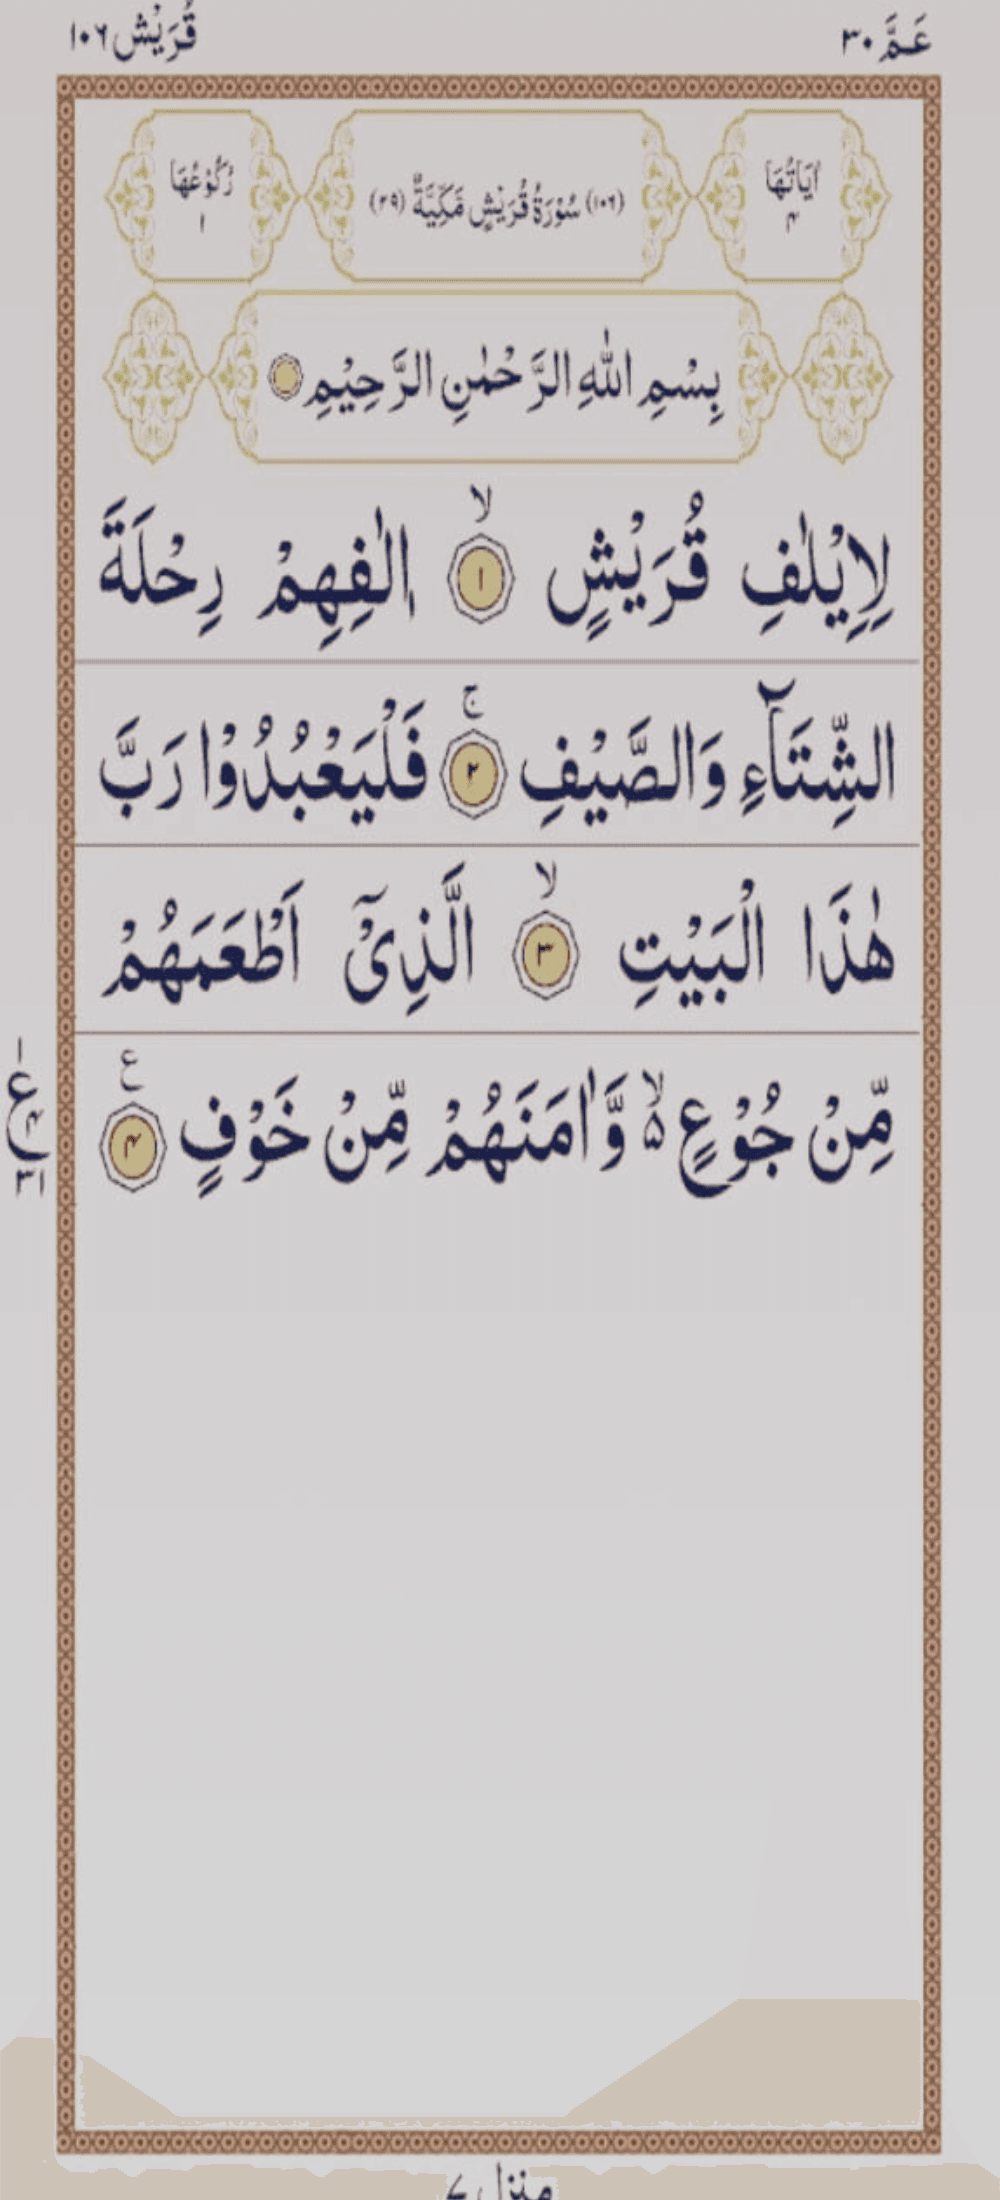 عَمَّ ٣٠
قُرَيْش ١٠٦
اٰيَاتُهَا ۴
(١٠٦) سُوْرَةُ قُرَيْشٍ مَّكِّيَّةٌ (٢٩)
رُكُوْعُهَا ١
بِسْمِ اللّٰهِ الرَّحْمٰنِ الرَّحِيْمِ
لِاِيْلٰفِ قُرَيْشٍ ۙ‏ ١ اٖلٰفِهِمْ رِحْلَةَ
الشِّتَآءِ وَالصَّيْفِ ۚ‏ ٢ فَلْيَعْبُدُوْا رَبَّ
هٰذَا الْبَيْتِ ۙ‏ ٣ الَّذِىْٓ اَطْعَمَهُمْ
مِّنْ جُوْعٍ ۙ۵ وَّاٰمَنَهُمْ مِّنْ خَوْفٍ ۴ ع
١
ع ۴
٣١
منزل ٧